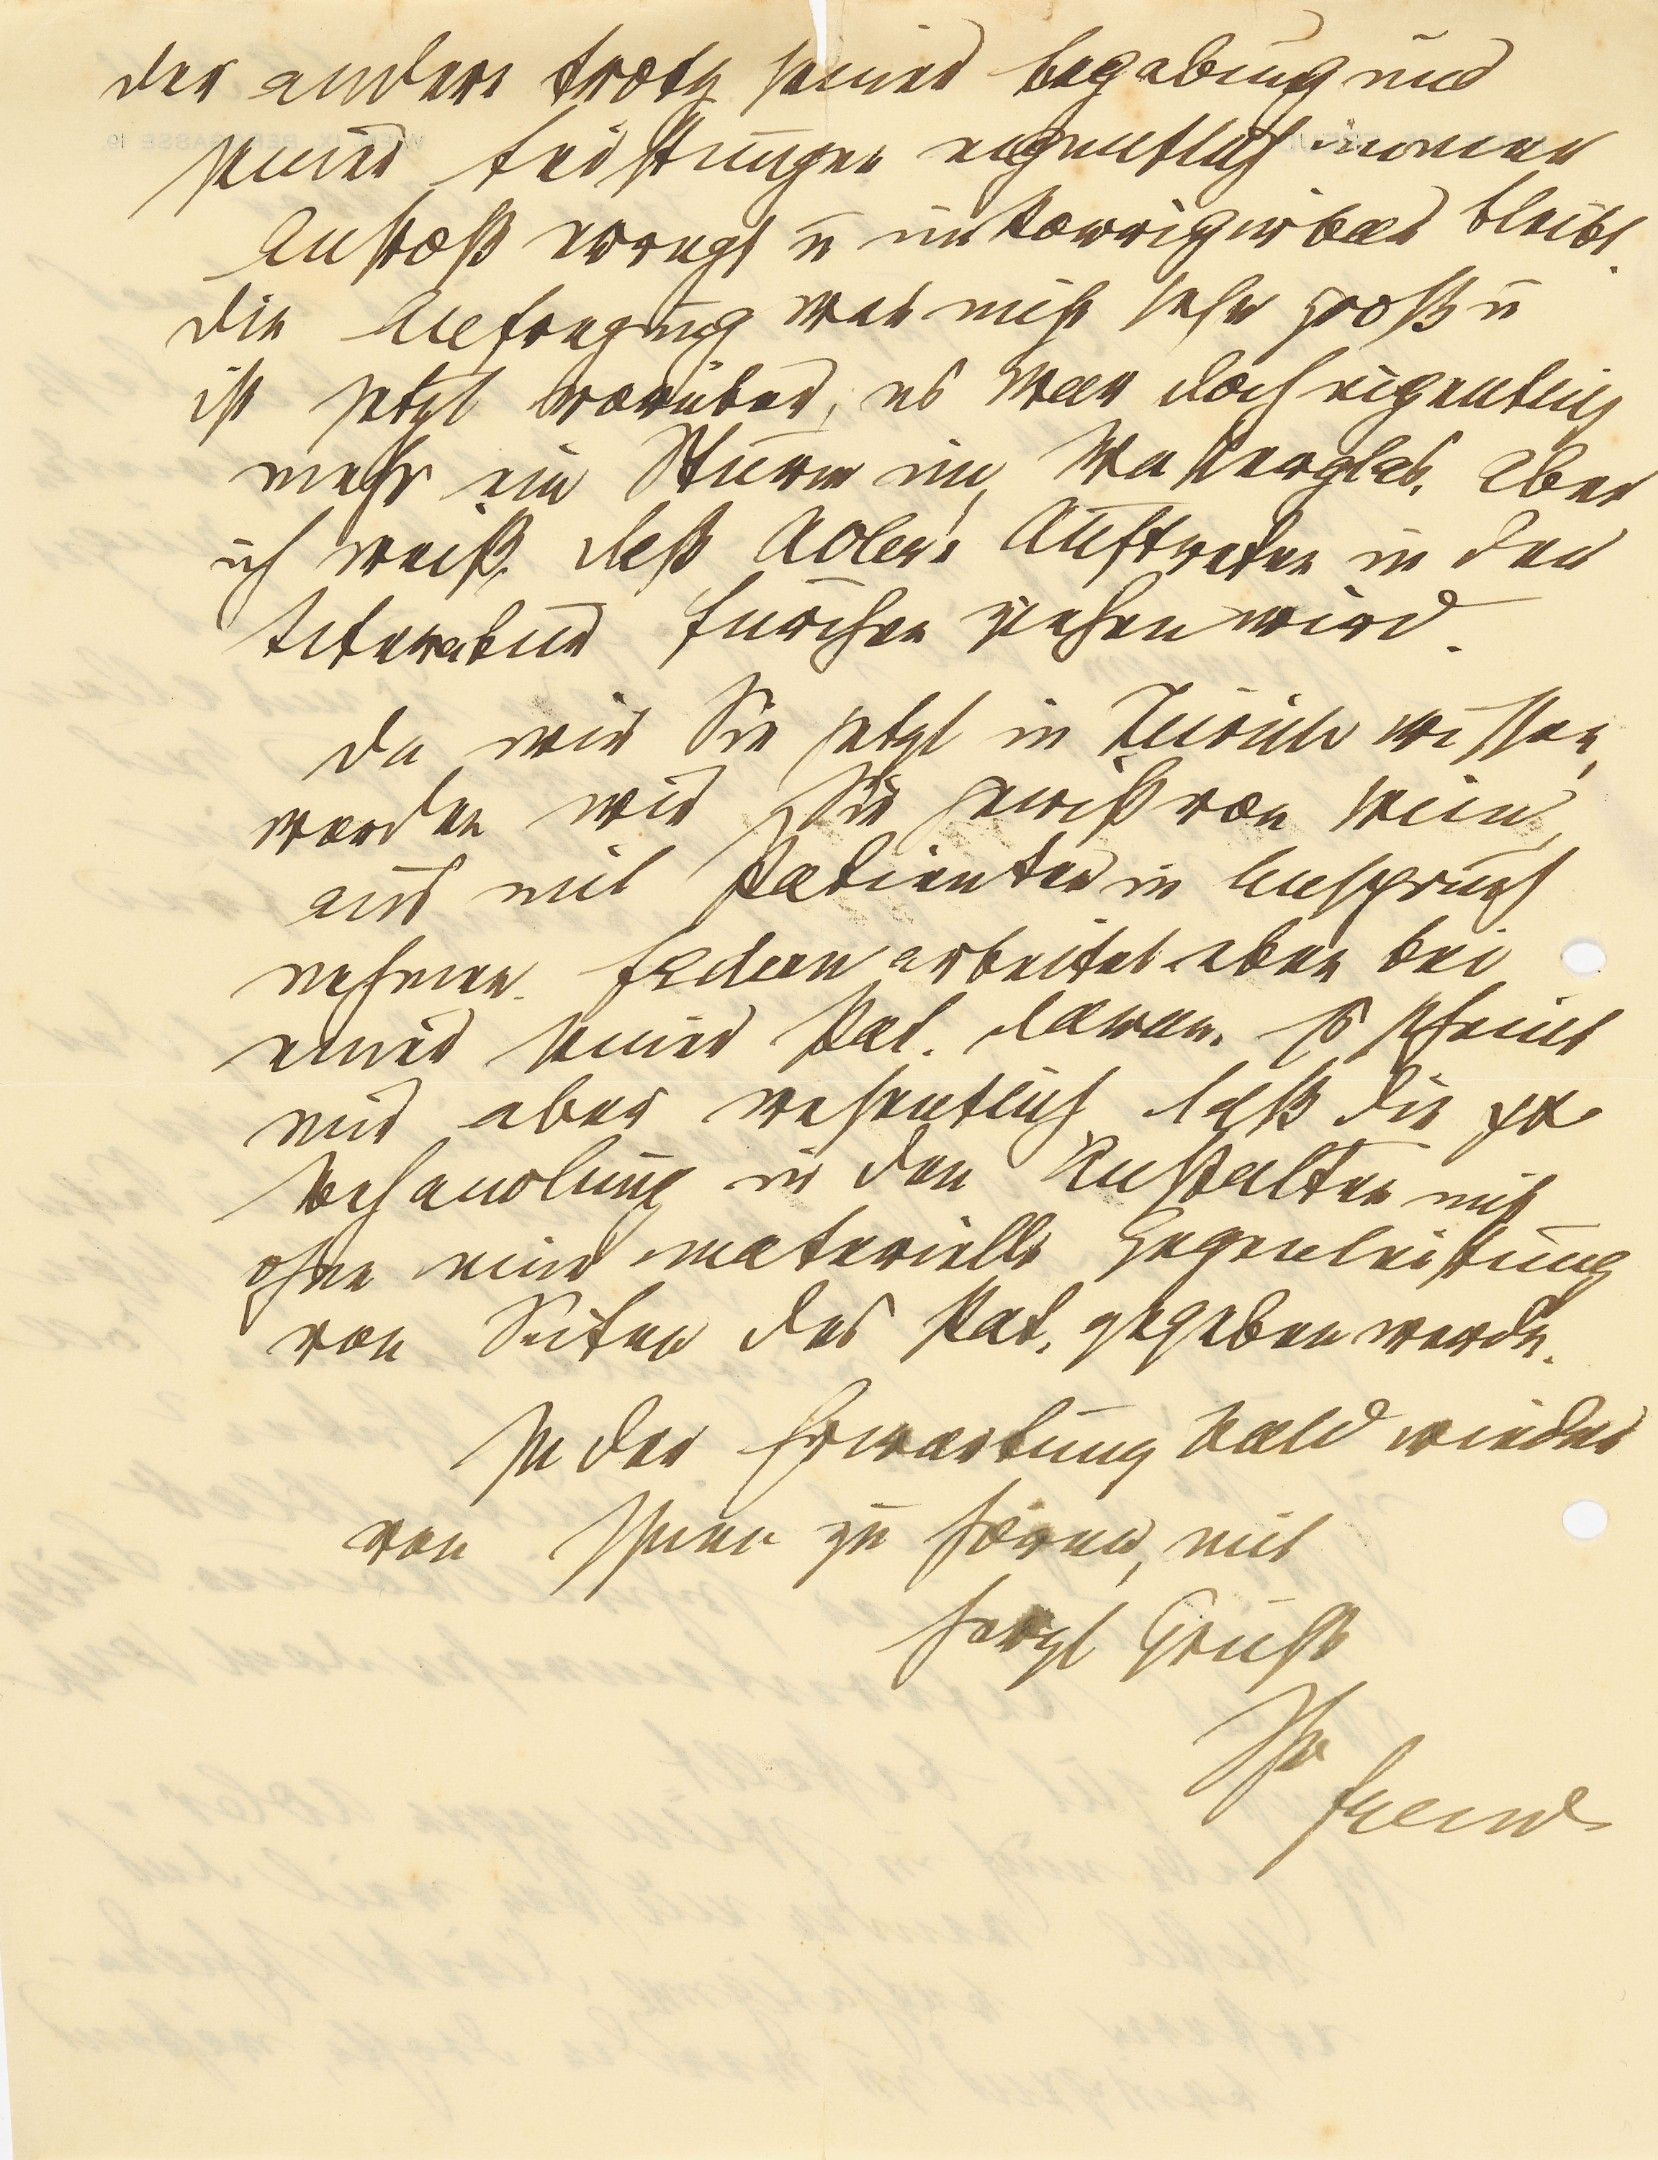 der andere trotz seiner Begabung und
seiner Leistungen eigentlich immer
Anstoß erregt u unkorrigirbar bleibt.
Die Aufregung war nicht sehr groß u
ist jetzt vorüber, es war doch eigentlich
mehr ein Sturm im Wasserglas. Aber
ich weiß, daß Adlers Auftreten in der
Literatur Furchen ziehen wird.
Da wir Sie jetzt in Zürich wissen,
werden wir Sie gewiß von Wien
aus mit Patienten in Anspruch
nehmen. Federn arbeitet eben bei
einer seiner Pat. daran. Es scheint
mir aber wesentlich, daß die ψα
Behandlung in den Anstalten nicht
ohne eine materielle Gegenleistung
von Seiten des Pat. gegeben werde.
In der Erwartung bald wieder
von Ihnen zu hören, mit
herzl Gruß
Ihr
Freud